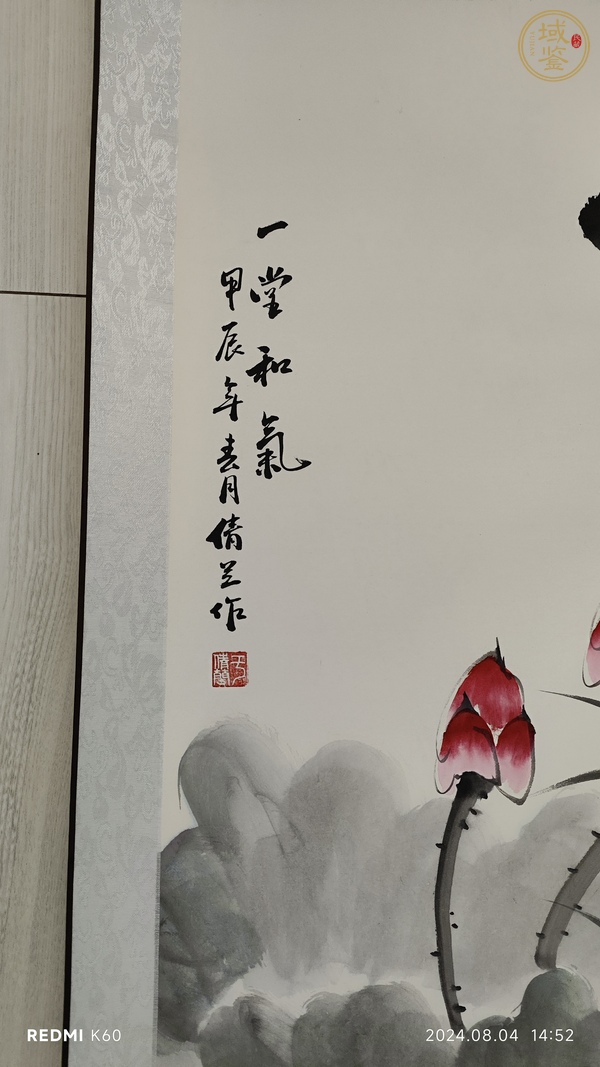 域鉴
一堂和氣
甲辰年春月倩兰作
REDMI K60
2024.08.04 14:52